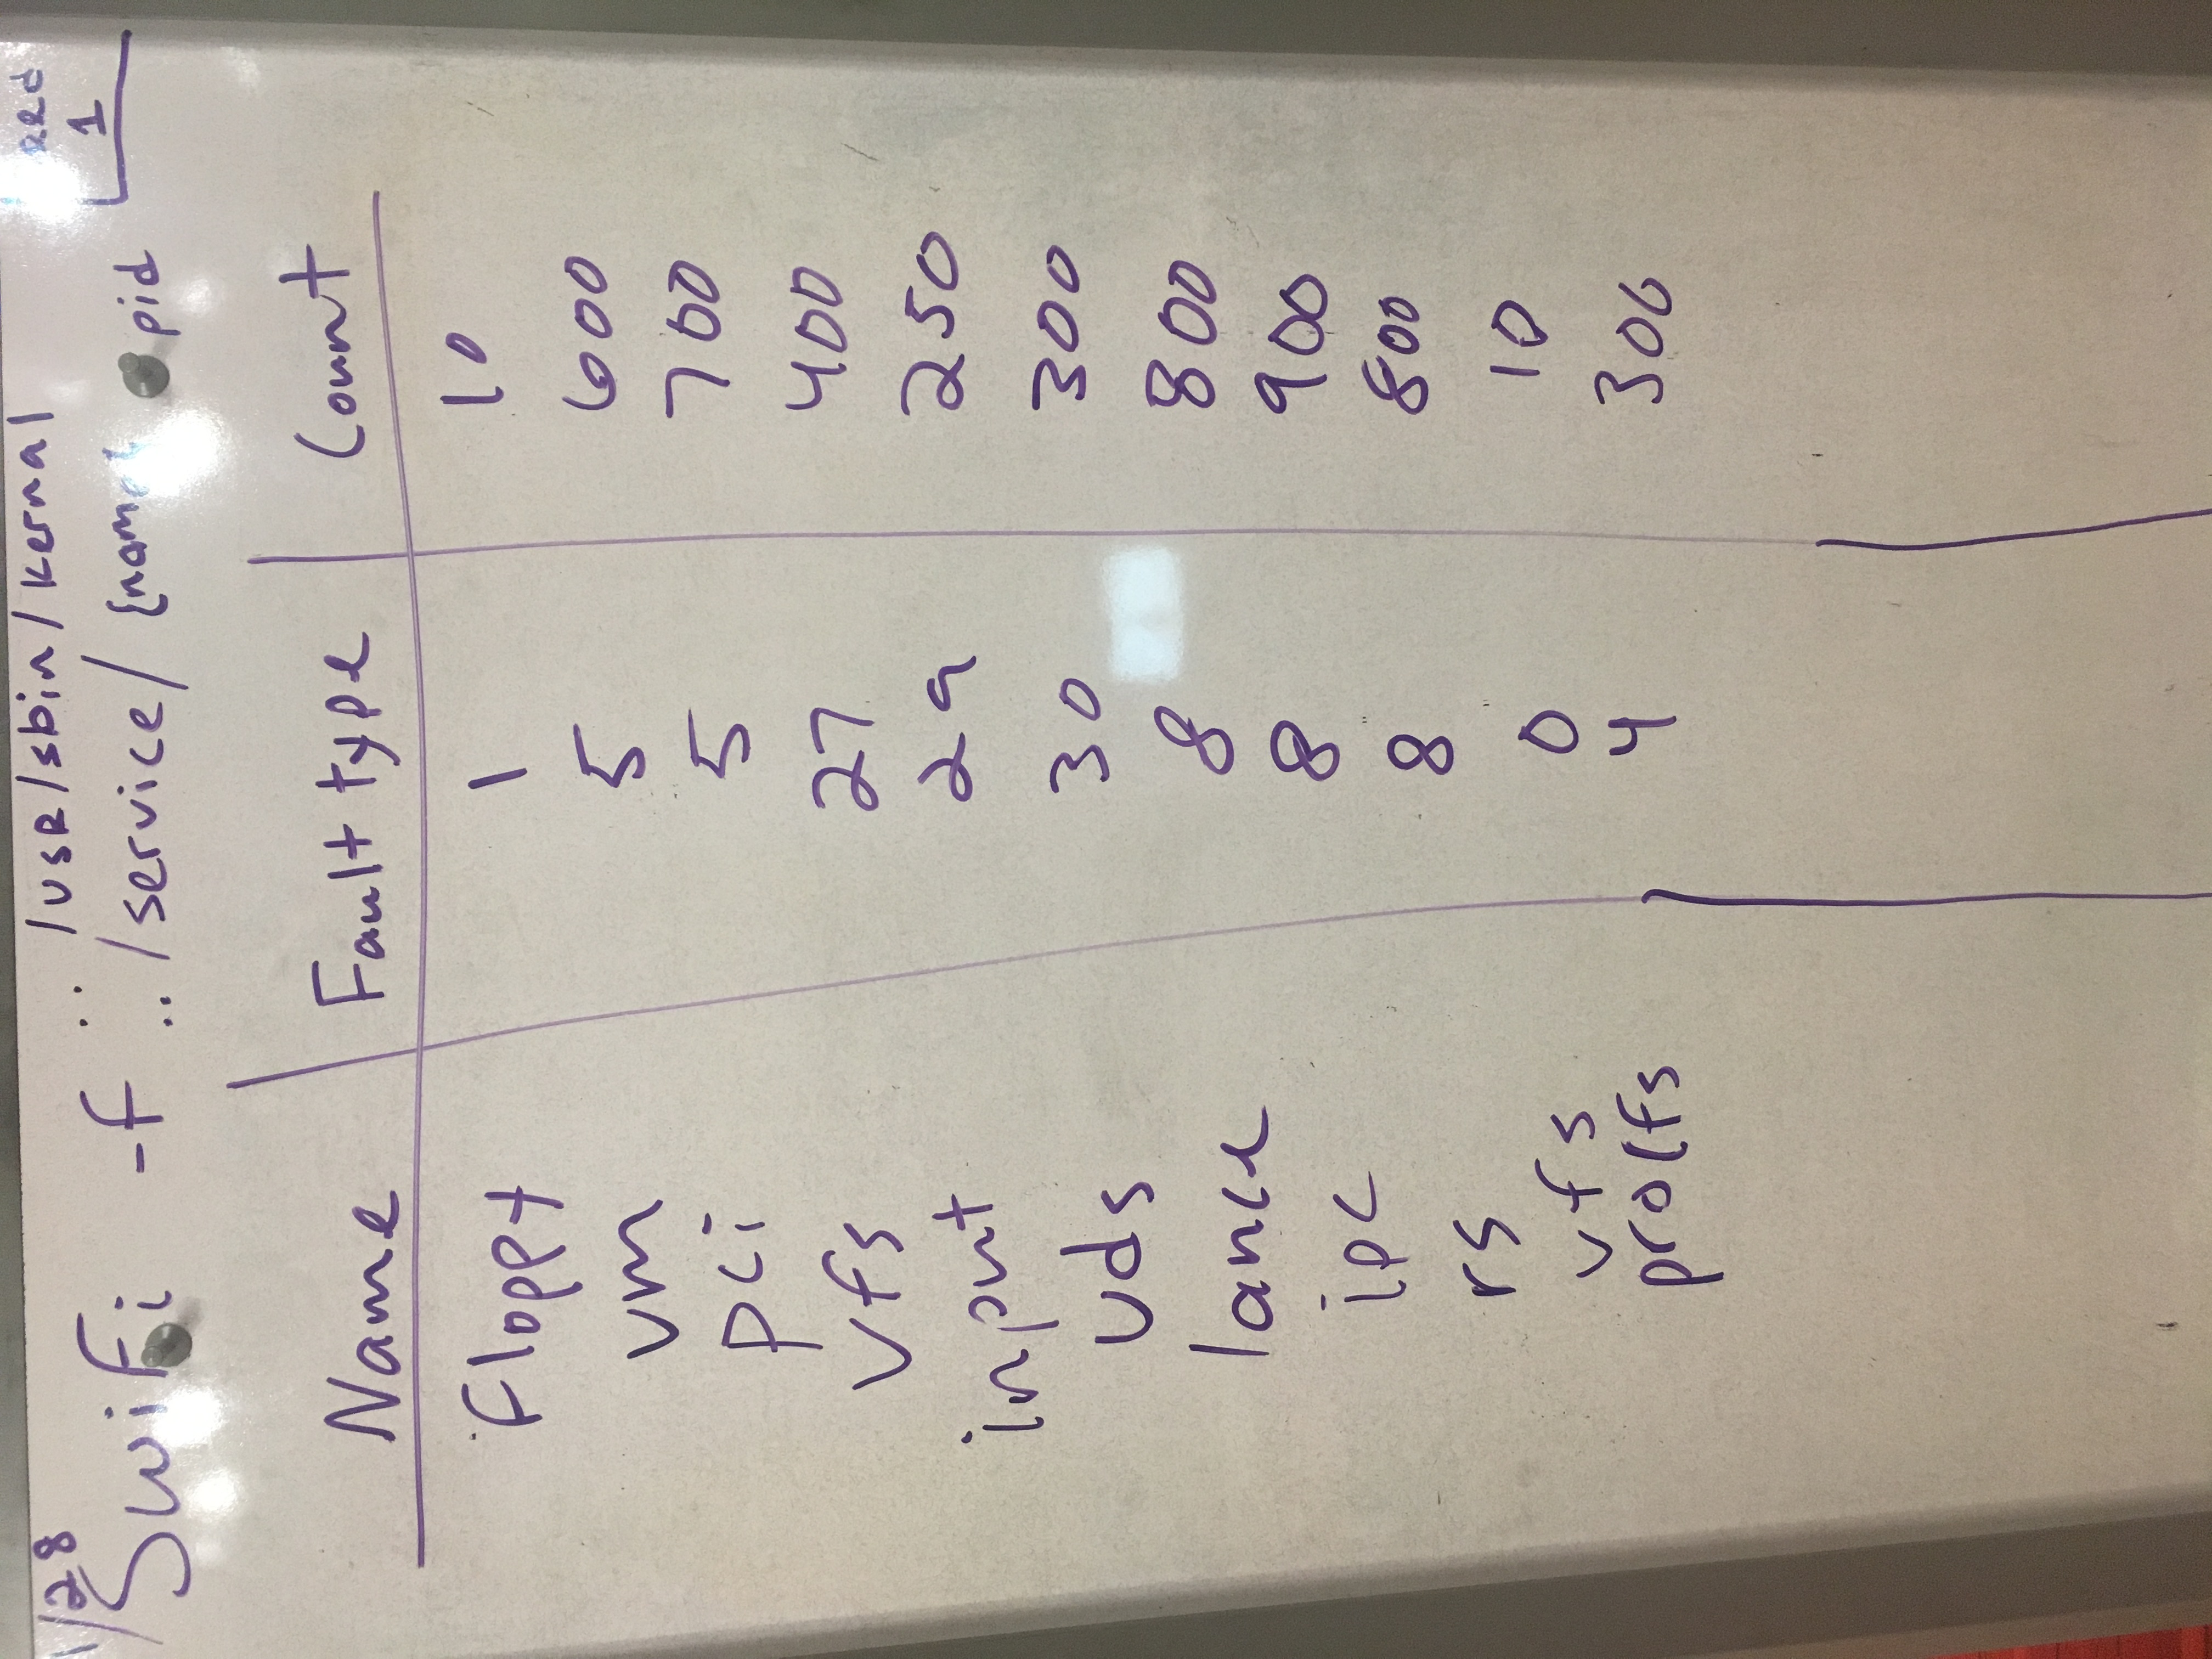 1/28
.. /usr/sbin/kernal
Swifi -f ../service/ {name} pid
1
Name Fault type Count
Floppy 1 10
vm 5 600
pci 5 700
vfs 27 400
input 29 250
uds 30 300
lance 8 800
ipc 8 900
rs 8 800
vfs 0 10
procfs 4 300